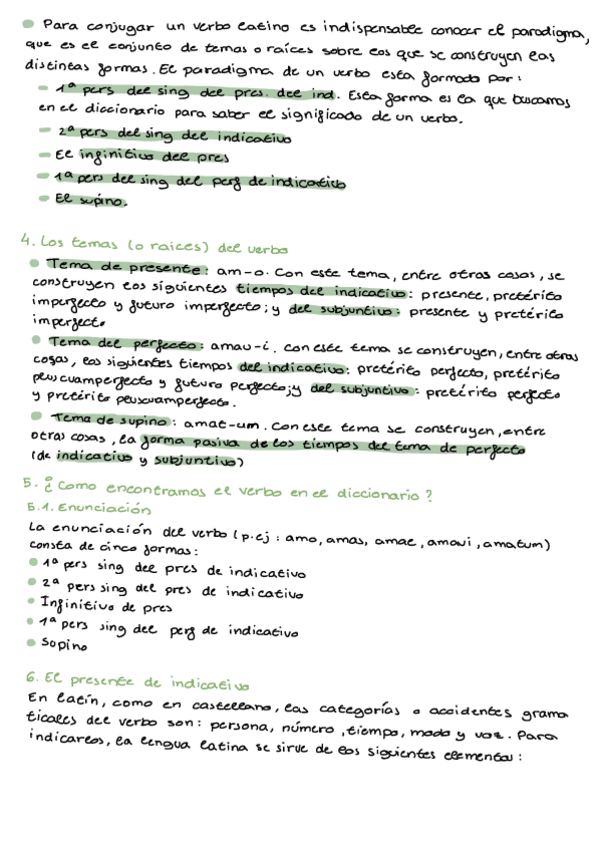 Para conjugar un verbo latino es indispensable conocer el paradigma,
que es el conjunto de temas o raíces sobre los que se construyen las
distintas formas. El paradigma de un verbo esta formado por:
1ª pers del sing del pres. del ind. Esta forma es la que buscamos
en el diccionario para saber el significado de un verbo.
2ª pers del sing del indicativo
El infinitivo del pres
1ª pers del sing del perf de indicativo
El supino.
4. Los temas (o raíces) del verbo
Tema de presente: am-o. Con este tema, entre otras cosas, se
construyen los siguientes tiempos del indicativo: presente, pretérito
imperfecto y futuro imperfecto; y del subjuntivo: presente y pretérito
imperfecto
Tema del perfecto: amav-i. Con este tema se construyen, entre otras
cosas, los siguientes tiempos del indicativo: pretérito perfecto, pretérito
pluscuamperfecto y futuro perfecto; y del subjuntivo: pretérito perfecto
y pretérito pluscuamperfecto.
Tema de supino: amat-um. Con este tema se construyen, entre
otras cosas, la forma pasiva de los tiempos del tema de perfecto
(de indicativo y subjuntivo)
5. ¿Como encontramos el verbo en el diccionario?
5.1. Enunciación
La enunciación del verbo (p.ej: amo, amas, amae, amavi, amatum)
consta de cinco formas:
1ª pers sing del pres de indicativo
2ª pers sing del pres de indicativo
Infinitivo de pres
1ª pers sing del perf de indicativo
Supino
6. El presente de indicativo
En latín, como en castellano, las categorías o accidentes grama
ticales del verbo son: persona, número, tiempo, modo y voz. Para
indicarlos, la lengua latina se sirve de los siguientes elementos: